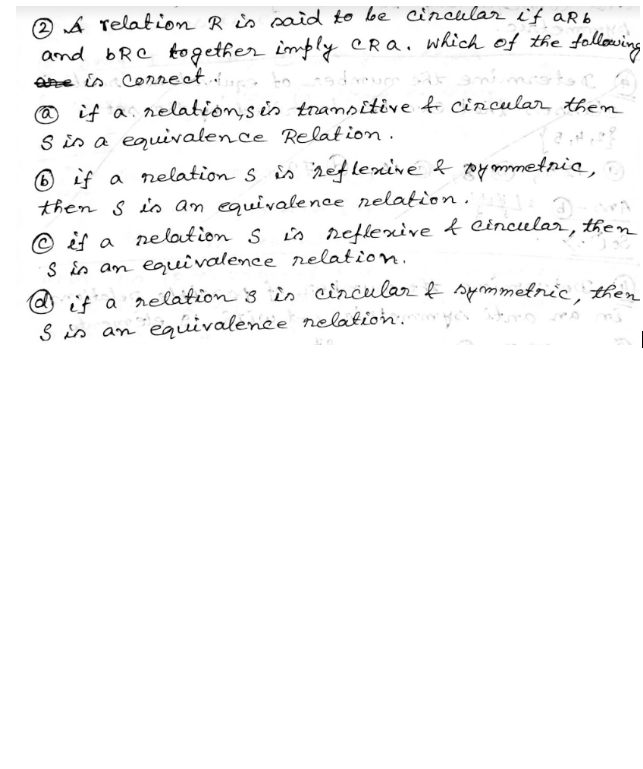 ② A relation R is said to be circular if aRb
and bRc together imply cRa. which of the following
are is correct.
ⓐ if a relation, s is transitive & circular then
S is a equivalence Relation.
ⓑ if a relation s is reflexive & symmetric,
then s is an equivalence relation.
ⓒ if a relation S is reflexive & circular, then
S is an equivalence relation.
ⓓ if a relation s is circular & symmetric, then
S is an equivalence relation.